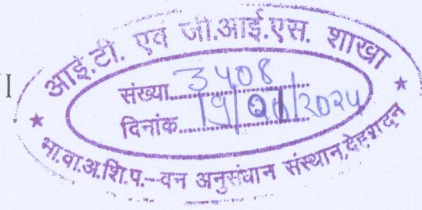 आई.टी. एवं जी.आई.एस. शाखा
संख्या 3408
दिनांक
भा.वा.अ.शि.प.–वन अनुसंधान संस्थान, देहरादून